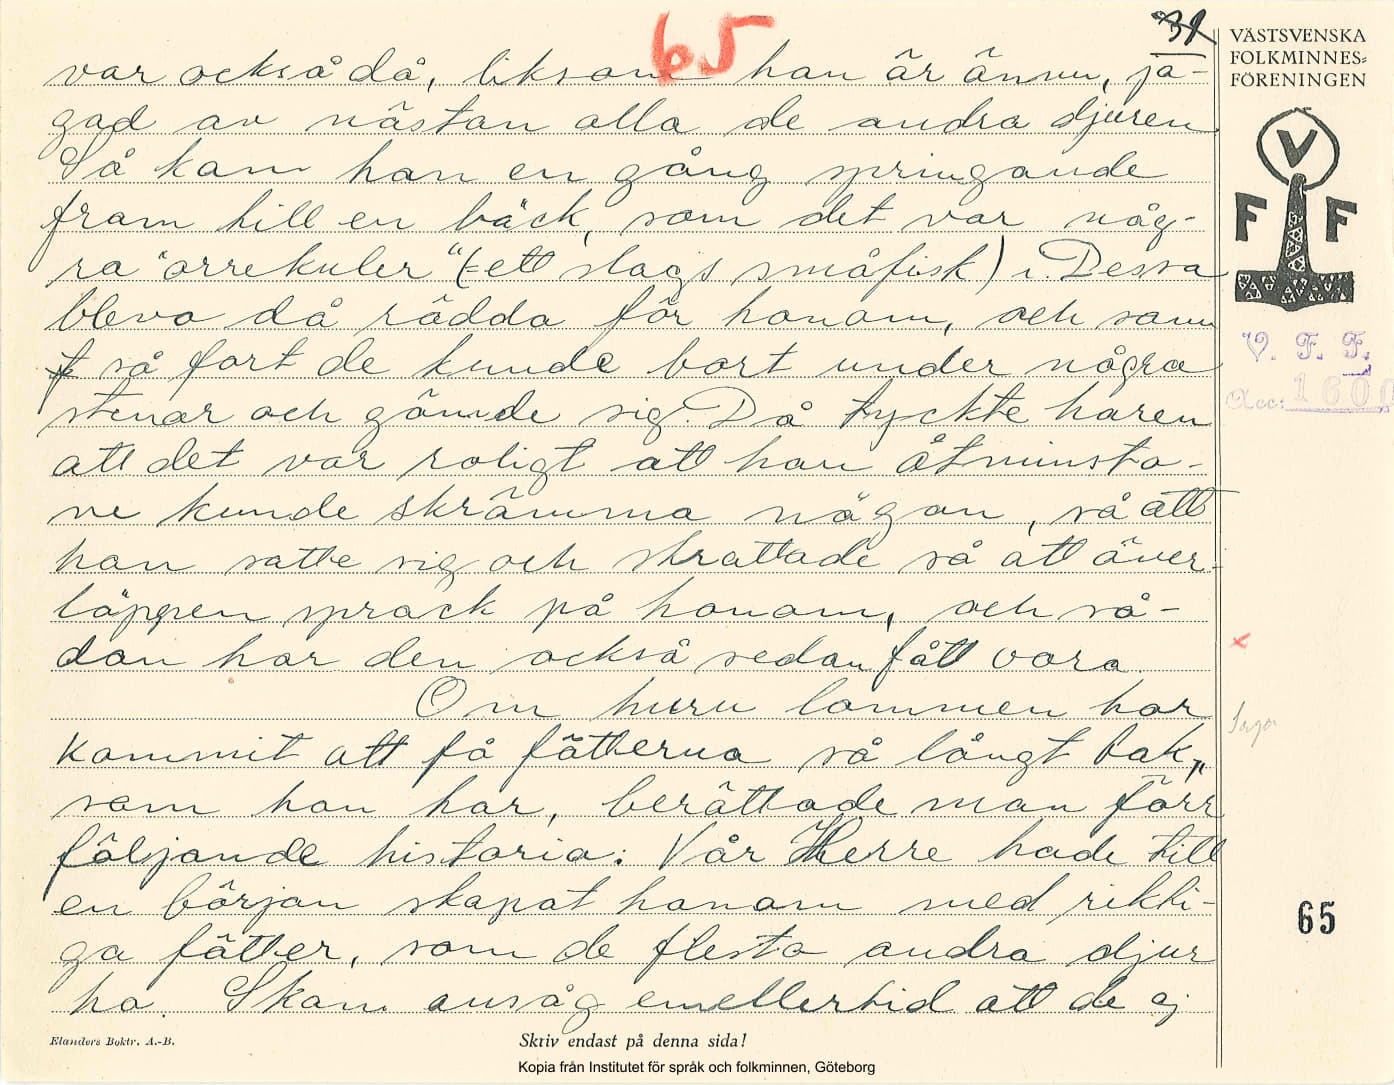 65
31
var också då, liksom han är ännu, ja-
gad av nästan alla de andra djuren
Så kom han en gång springande
fram till en bäck, som det var någ-
ra "orrekuler" (= ett slags småfisk) i. Dessa
blevo då rädda för honom, och summo
så fort de kunde bort under några
stenar och gömde sig. Då tyckte haren
att det var roligt att han åtminsto-
ne kunde skrämma någon, så att
han satte sig och skrattade så att över-
läppen sprack på honom, och så-
dan har den också sedan fått vara
Om huru lommen har
kommit att få fötterna så långt bak,
som han har, berättade man förr
följande historia: Vår Herre hade till
en början skapat honom med rikti-
ga fötter, som de flesta andra djur
ha. Skam ansåg emellertid att de ej
VÄSTSVENSKA
FOLKMINNES-
FÖRENINGEN
V
F F
V. F. F.
Acc: 1600
x
Saga
65
Elanders Boktr. A.-B.
Skriv endast på denna sida!
Kopia från Institutet för språk och folkminnen, Göteborg